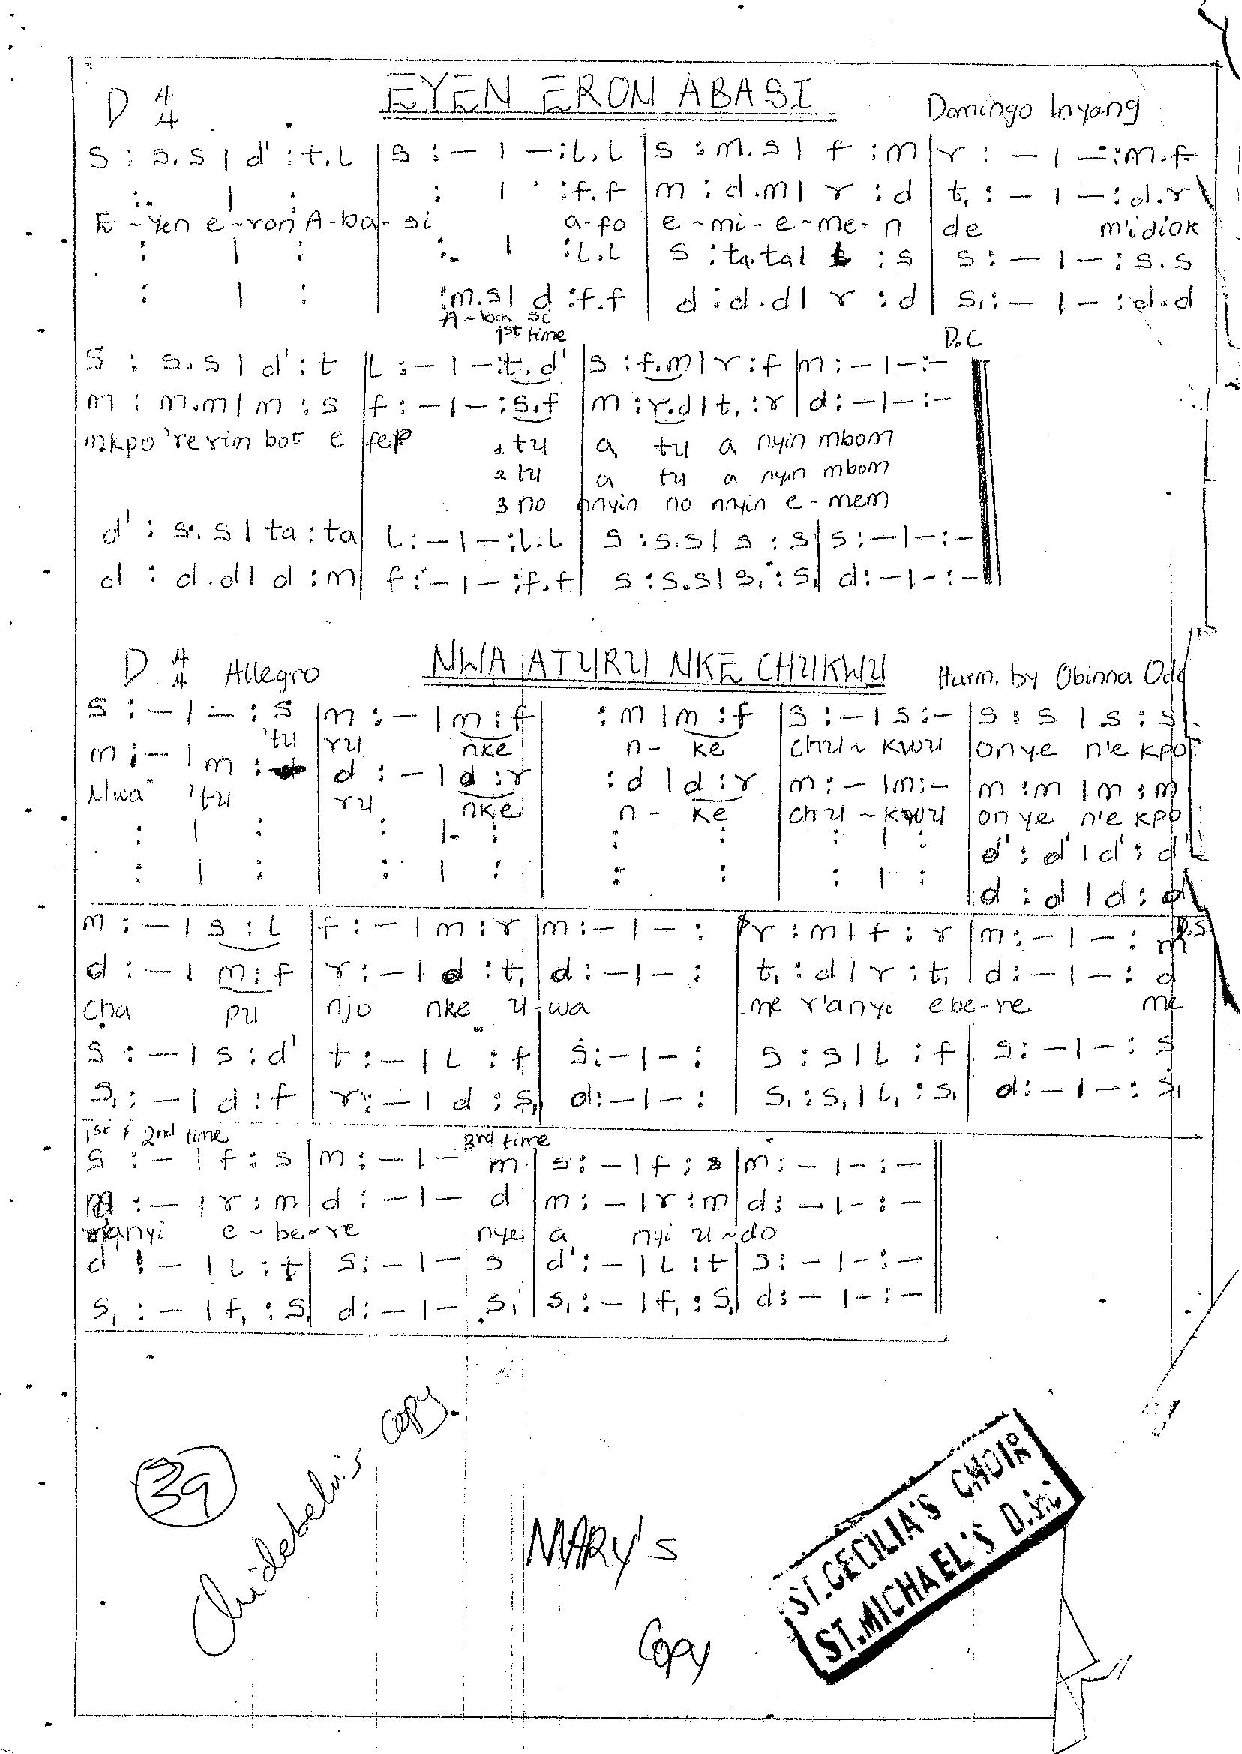 EYEN ERON ABASI
D 4/4 Domingo Inyang
s : s.s | d' : t.l | s : – | – : l.l | s : m.s | f : m | r : – | – : m.f
: | : | : | : f.f | m : d.m | r : d | t, : – | – : d.r
E-yen e-ron A-ba-si a-fo e-mi-e-me-n de m'idiok
: | : | : | : l.l | s : ta.ta | : s | s : – | – : s.s
: | : | : m.s | d : f.f | d : d.d | r : d | s, : – | – : d.d
A-ba si
1st time D.C
s : s.s | d' : t | l : – | – : t.d' | s : f.m | r : f | m : – | – : –
m : m.m | m : s | f : – | – : s.f | m : r.d | t, : r | d : – | – : –
mkpo 're yin bot e fep 1 tu a tu a nyin mbom
2 tu a tu a nyin mbom
3 no nnyin no nnyin e-mem
d' : s.s | ta : ta | l : – | – : l.l | s : s.s | s : s | s : – | – : –
d : d.d | d : m | f : – | – : f.f | s : s.s | s, : s, | d : – | – : –
NWA ATURU NKE CHUKWU
D 4/4 Allegro Harm. by Obinna
s : – | – : s | m : – | m : f | : m | m : f | s : – | s : – | s : s | s : s
'tu ru nke n- ke chu-kwu onye n'e kpo
m : – | m : | d : – | d : r | : d | d : r | m : – | m : – | m : m | m : m
Nwa 'tu ru nke n- ke chu-kwu onye n'e kpo
: | : | : | : | : | : | : | : | d' : d' | d' : d'
: | : | : | : | : | : | : | : | d : d | d : d
D.S
m : – | s : l | f : – | m : r | m : – | – : | r : m | f : r | m : – | – : m
d : – | m : f | r : – | d : t, | d : – | – : | t, : d | r : t, | d : – | – : d
cha pu njo nke u-wa me r'anyi ebe-re me
s : – | s : d' | t : – | l : f | s : – | – : | s : s | l : f | s : – | – : s
s, : – | d : f | r : – | d : s, | d : – | – : | s, : s, | l, : s, | d : – | – : s,
1st & 2nd time 3rd time
s : – | f : s | m : – | – m | s : – | f : s | m : – | – : –
m : – | r : m | d : – | – d | m : – | r : m | d : – | – : –
r'anyi e-be-re nye a nyi u-do
d' : – | l : t | s : – | – s | d' : – | l : t | s : – | – : –
s, : – | f, : s, | d : – | – s, | s, : – | f, : s, | d : – | – : –
39
Chidebelu's copy.
MARY'S
Copy
ST. CECILIA'S CHOIR
ST. MICHAEL'S D.